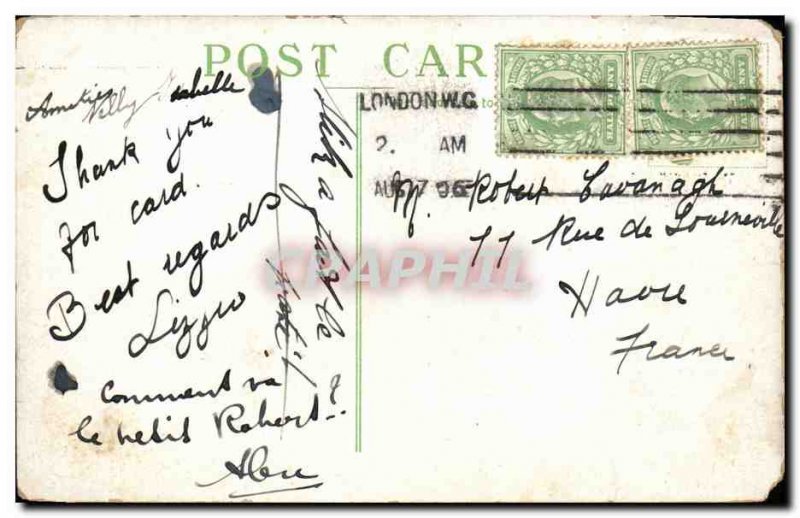 POST CAR
LONDON.W.C.
2. AM
AU 7 06
HALFPENNY
Amitiés
Nelly Isabelle
Thank you
for card.
Best regards
Lizzie
Comment va
le petit Robert?
M. Robert Cavanagh
77 Rue de Tourneville
Havre
France
CRAPHIL